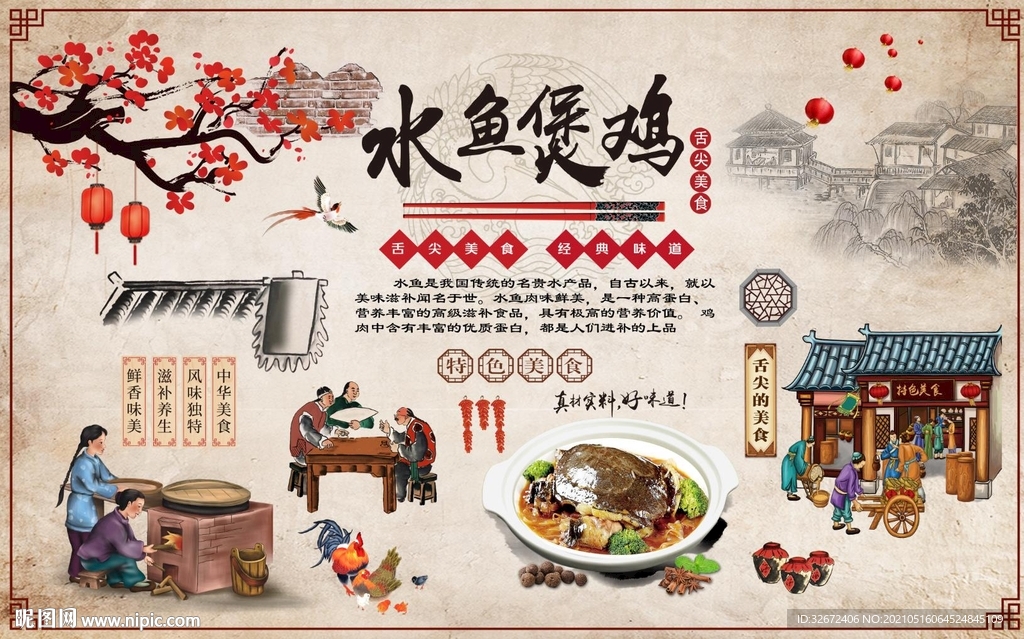 水鱼煲鸡
舌尖美食
舌尖美食 经典味道
水鱼是我国传统的名贵水产品，自古以来，就以
美味滋补闻名于世。水鱼肉味鲜美，是一种高蛋白、
营养丰富的高级滋补食品，具有极高的营养价值。 鸡
肉中含有丰富的优质蛋白，都是人们进补的上品
特色美食
真材实料，好味道！
中华美食
风味独特
滋补养生
鲜香味美
舌尖的美食
特色美食
昵图网 www.nipic.com
ID:32672406 NO:20210516064524845109